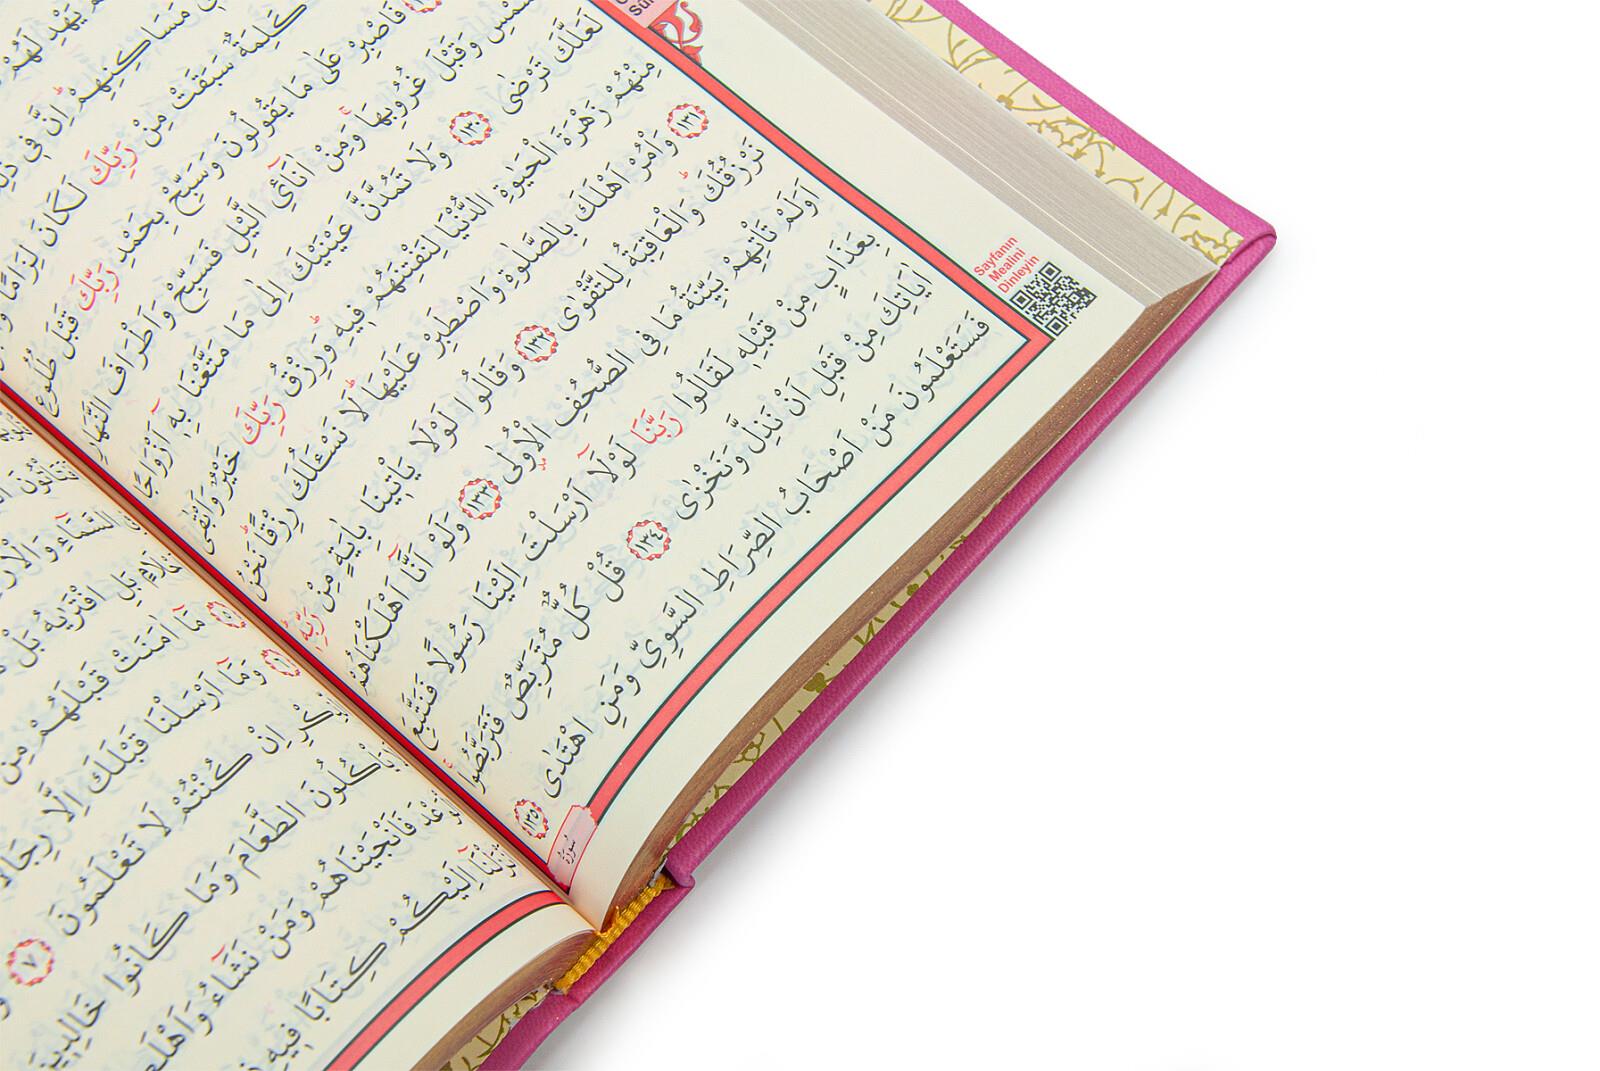 يَهْدِ لَهُمْ
مَسَاكِنِهِمْ اِنَّ فٖى ذٰلِكَ
كَلِمَةٌ سَبَقَتْ مِنْ رَبِّكَ لَكَانَ لِزَامًا
فَاصْبِرْ عَلٰى مَا يَقُولُونَ وَسَبِّحْ بِحَمْدِ رَبِّكَ قَبْلَ طُلُوعِ
وَقَبْلَ غُرُوبِهَا وَمِنْ اٰنَآئِ الَّيْلِ فَسَبِّحْ وَاَطْرَافَ النَّهَارِ
لَعَلَّكَ تَرْضٰى ﴿١٣٠﴾ وَلَا تَمُدَّنَّ عَيْنَيْكَ اِلٰى مَا مَتَّعْنَا بِهٖٓ اَزْوَاجًا
مِنْهُمْ زَهْرَةَ الْحَيٰوةِ الدُّنْيَا لِنَفْتِنَهُمْ فٖيهِ وَرِزْقُ رَبِّكَ خَيْرٌ وَاَبْقٰى
﴿١٣١﴾ وَأْمُرْ اَهْلَكَ بِالصَّلٰوةِ وَاصْطَبِرْ عَلَيْهَا لَا نَسْـَٔلُكَ رِزْقًا نَحْنُ
نَرْزُقُكَ وَالْعَاقِبَةُ لِلتَّقْوٰى ﴿١٣٢﴾ وَقَالُوا لَوْلَا يَأْتٖينَا بِاٰيَةٍ مِنْ رَبِّهٖ
اَوَلَمْ تَأْتِهِمْ بَيِّنَةُ مَا فِى الصُّحُفِ الْاُولٰى ﴿١٣٣﴾ وَلَوْ اَنَّٓا اَهْلَكْنَاهُمْ
بِعَذَابٍ مِنْ قَبْلِهٖ لَقَالُوا رَبَّنَا لَوْلَٓا اَرْسَلْتَ اِلَيْنَا رَسُولًا فَنَتَّبِعَ
اٰيَاتِكَ مِنْ قَبْلِ اَنْ نَذِلَّ وَنَخْزٰى ﴿١٣٤﴾ قُلْ كُلٌّ مُتَرَبِّصٌ فَتَرَبَّصُوا
فَسَتَعْلَمُونَ مَنْ اَصْحَابُ الصِّرَاطِ السَّوِىِّ وَمَنِ اهْتَدٰى ﴿١٣٥﴾
سُورَةُ
Sayfanın
Mealini
Dinleyin
السَّمَٓاءِ وَالْاَرْضِ
بَلِ افْتَرٰيهُ بَلْ
مَٓا اٰمَنَتْ قَبْلَهُمْ مِنْ
﴿٦﴾ وَمَٓا اَرْسَلْنَا قَبْلَكَ اِلَّا رِجَالًا
اِنْ كُنْتُمْ لَا تَعْلَمُونَ ﴿٧﴾
يَأْكُلُونَ الطَّعَامَ وَمَا كَانُوا خَالِدٖينَ
فَاَنْجَيْنَاهُمْ وَمَنْ نَشَٓاءُ وَاَهْلَكْنَا
اِلَيْكُمْ كِتَابًا فٖيهِ